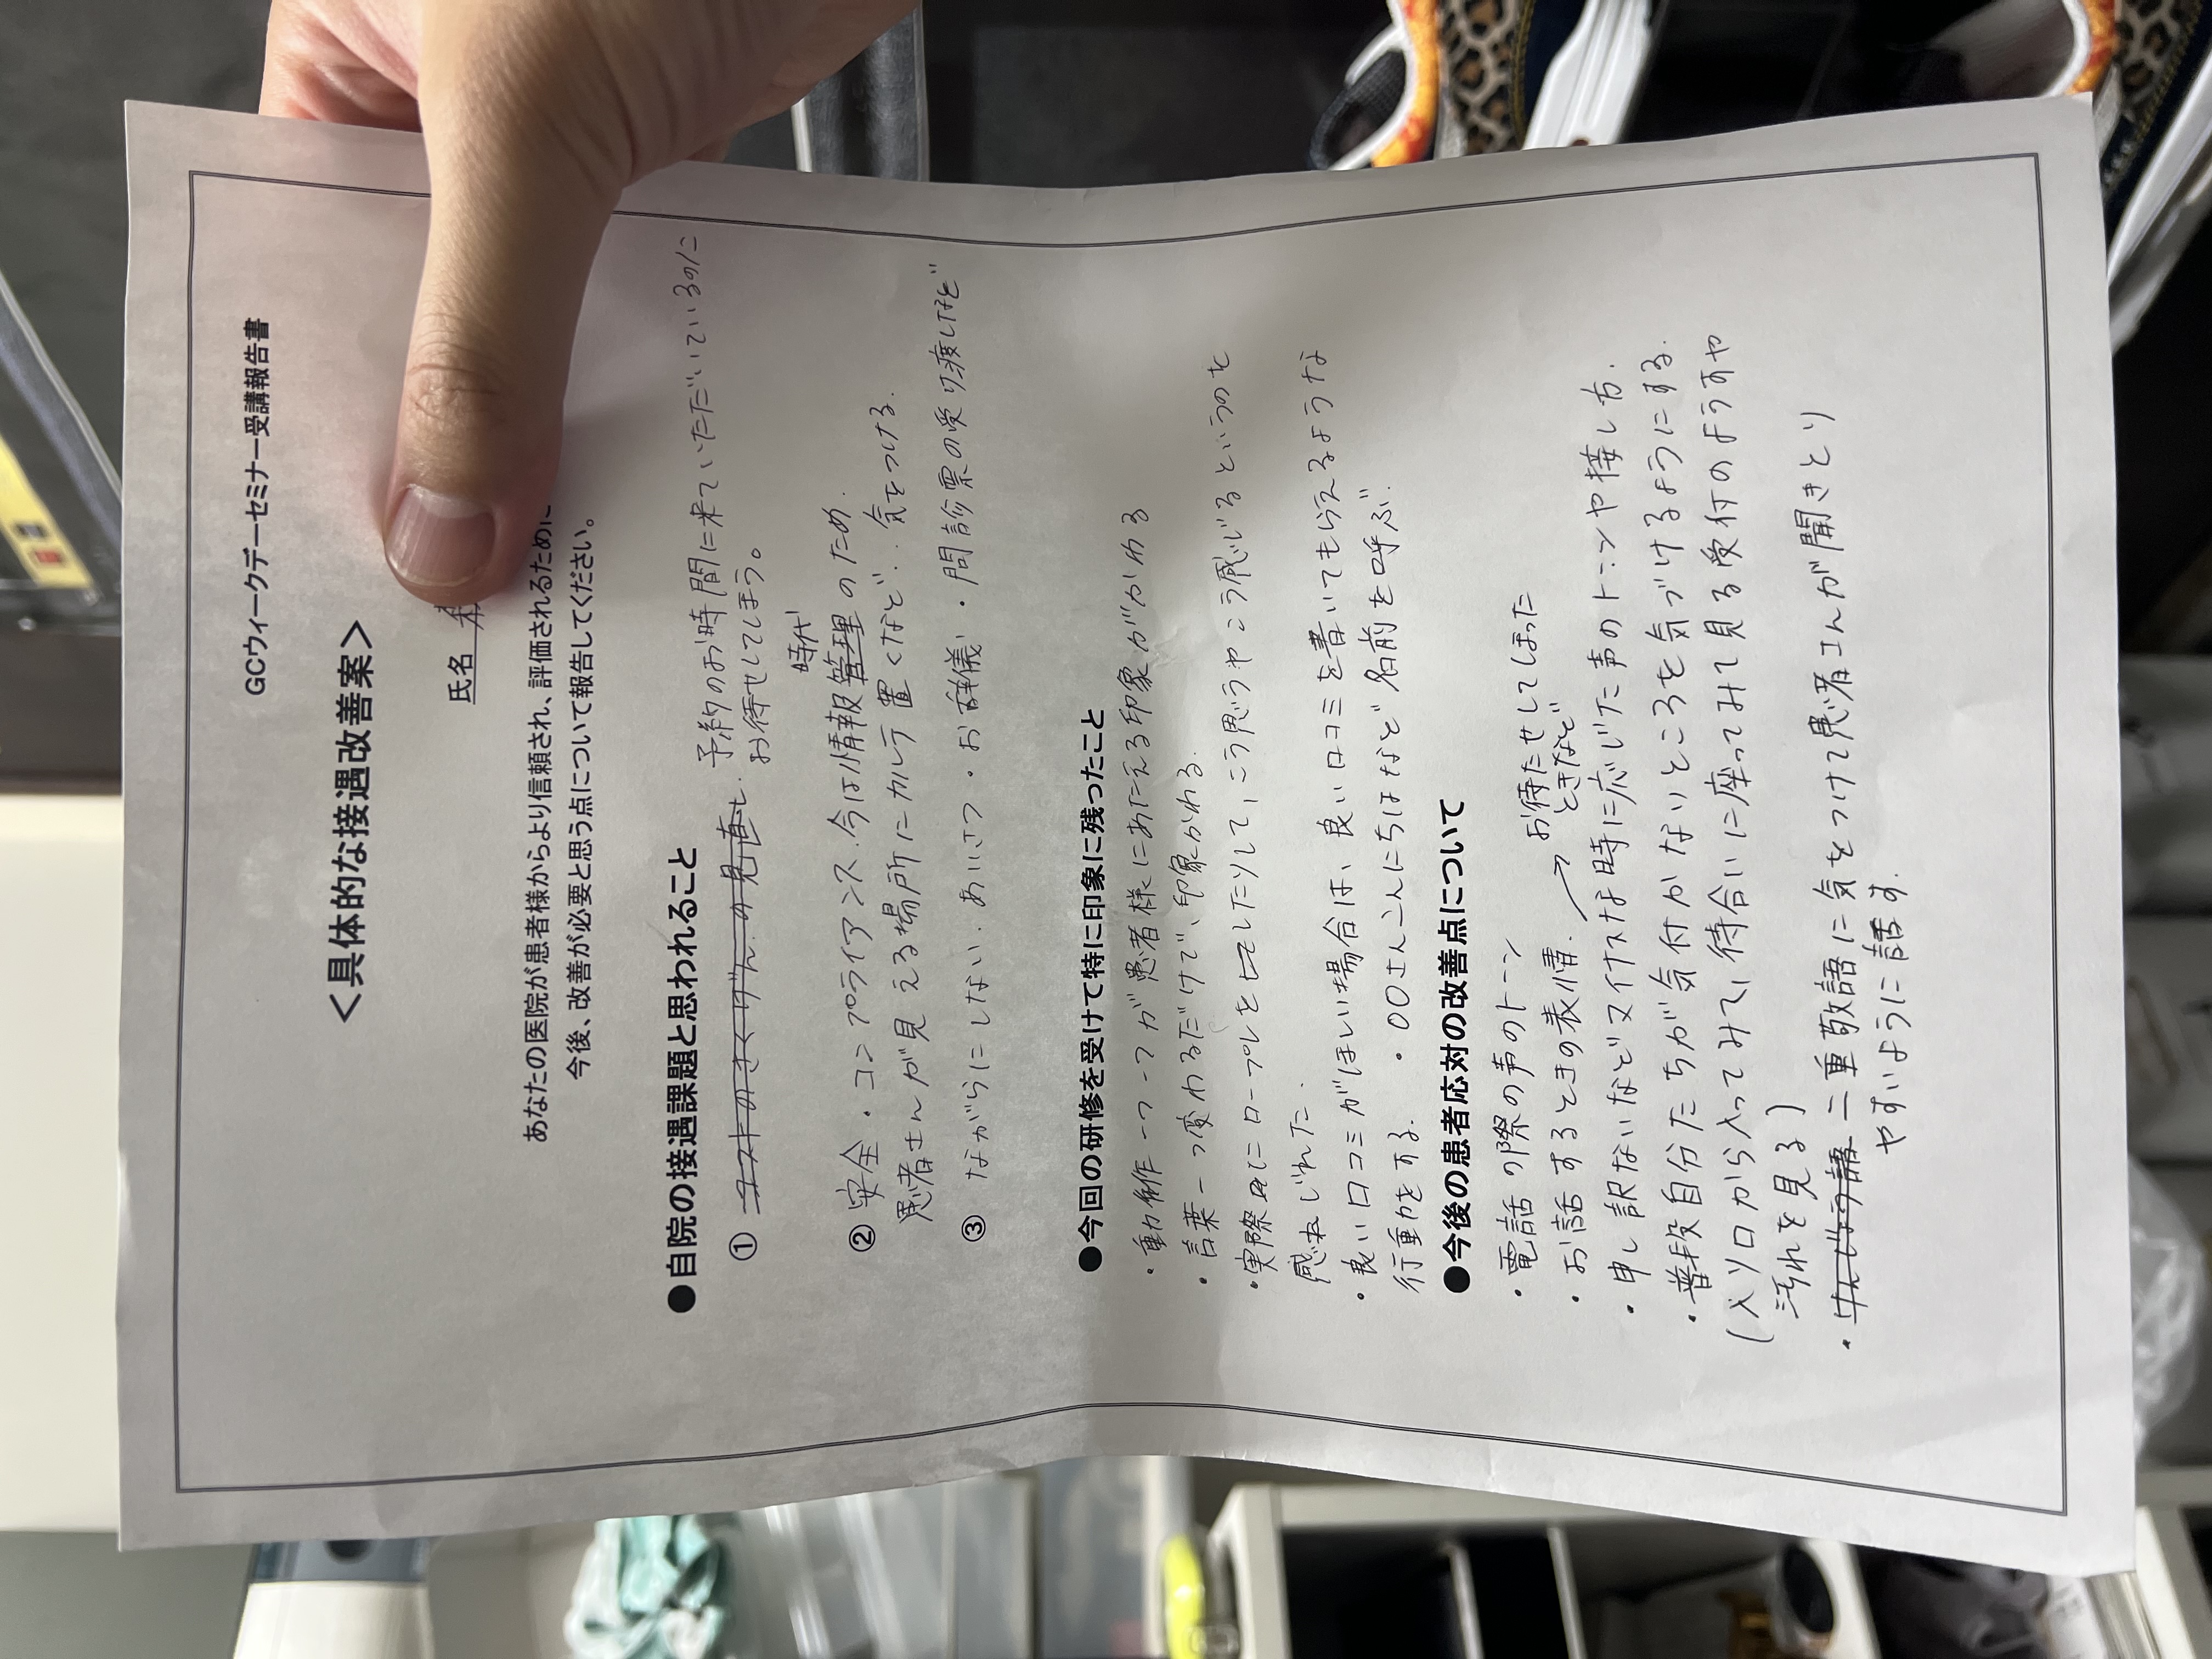 GCウィークデーセミナー受講報告書
＜具体的な接遇改善案＞
氏名
あなたの医院が患者様からより信頼され、評価されるために
今後、改善が必要と思う点について報告してください。
●自院の接遇課題と思われること
① 予約のお時間に来ていただいているのに
お待せしてしまう。
時代
② 安全・コンプライアンス.今は情報管理のため.
患者さんが見える場所にカルテ置くなど.気をつける.
③ ながらにしない.あいさつ・お辞儀・問診票の受け渡しなど
●今回の研修を受けて特に印象に残ったこと
・動作一つ一つが患者様にあたえる印象がかわる
・言葉一つ変わるだけで、印象かわる.
・実際にロープレをしたりして、こう思うやこう感じるというのを
感じれた.
・良い口コミがほしい場合は、良い口コミを書いてもらえるような
行動をする. ・〇〇さんこんにちはなど名前を呼ぶ.
●今後の患者応対の改善点について
・電話の際の声のトーン
・お話するときの表情. → お待たせしてしまった
ときなど
・申し訳ないなどマイナスな時に応じた声のトーンや接し方.
・普段自分たちが気付かないところを気づけるようにする.
(入り口から入ってみて、待合いに座ってみて見る受付のようすや
汚れを見る)
・二重敬語に気をつけて患者さんが聞きとり
やすいように話す.